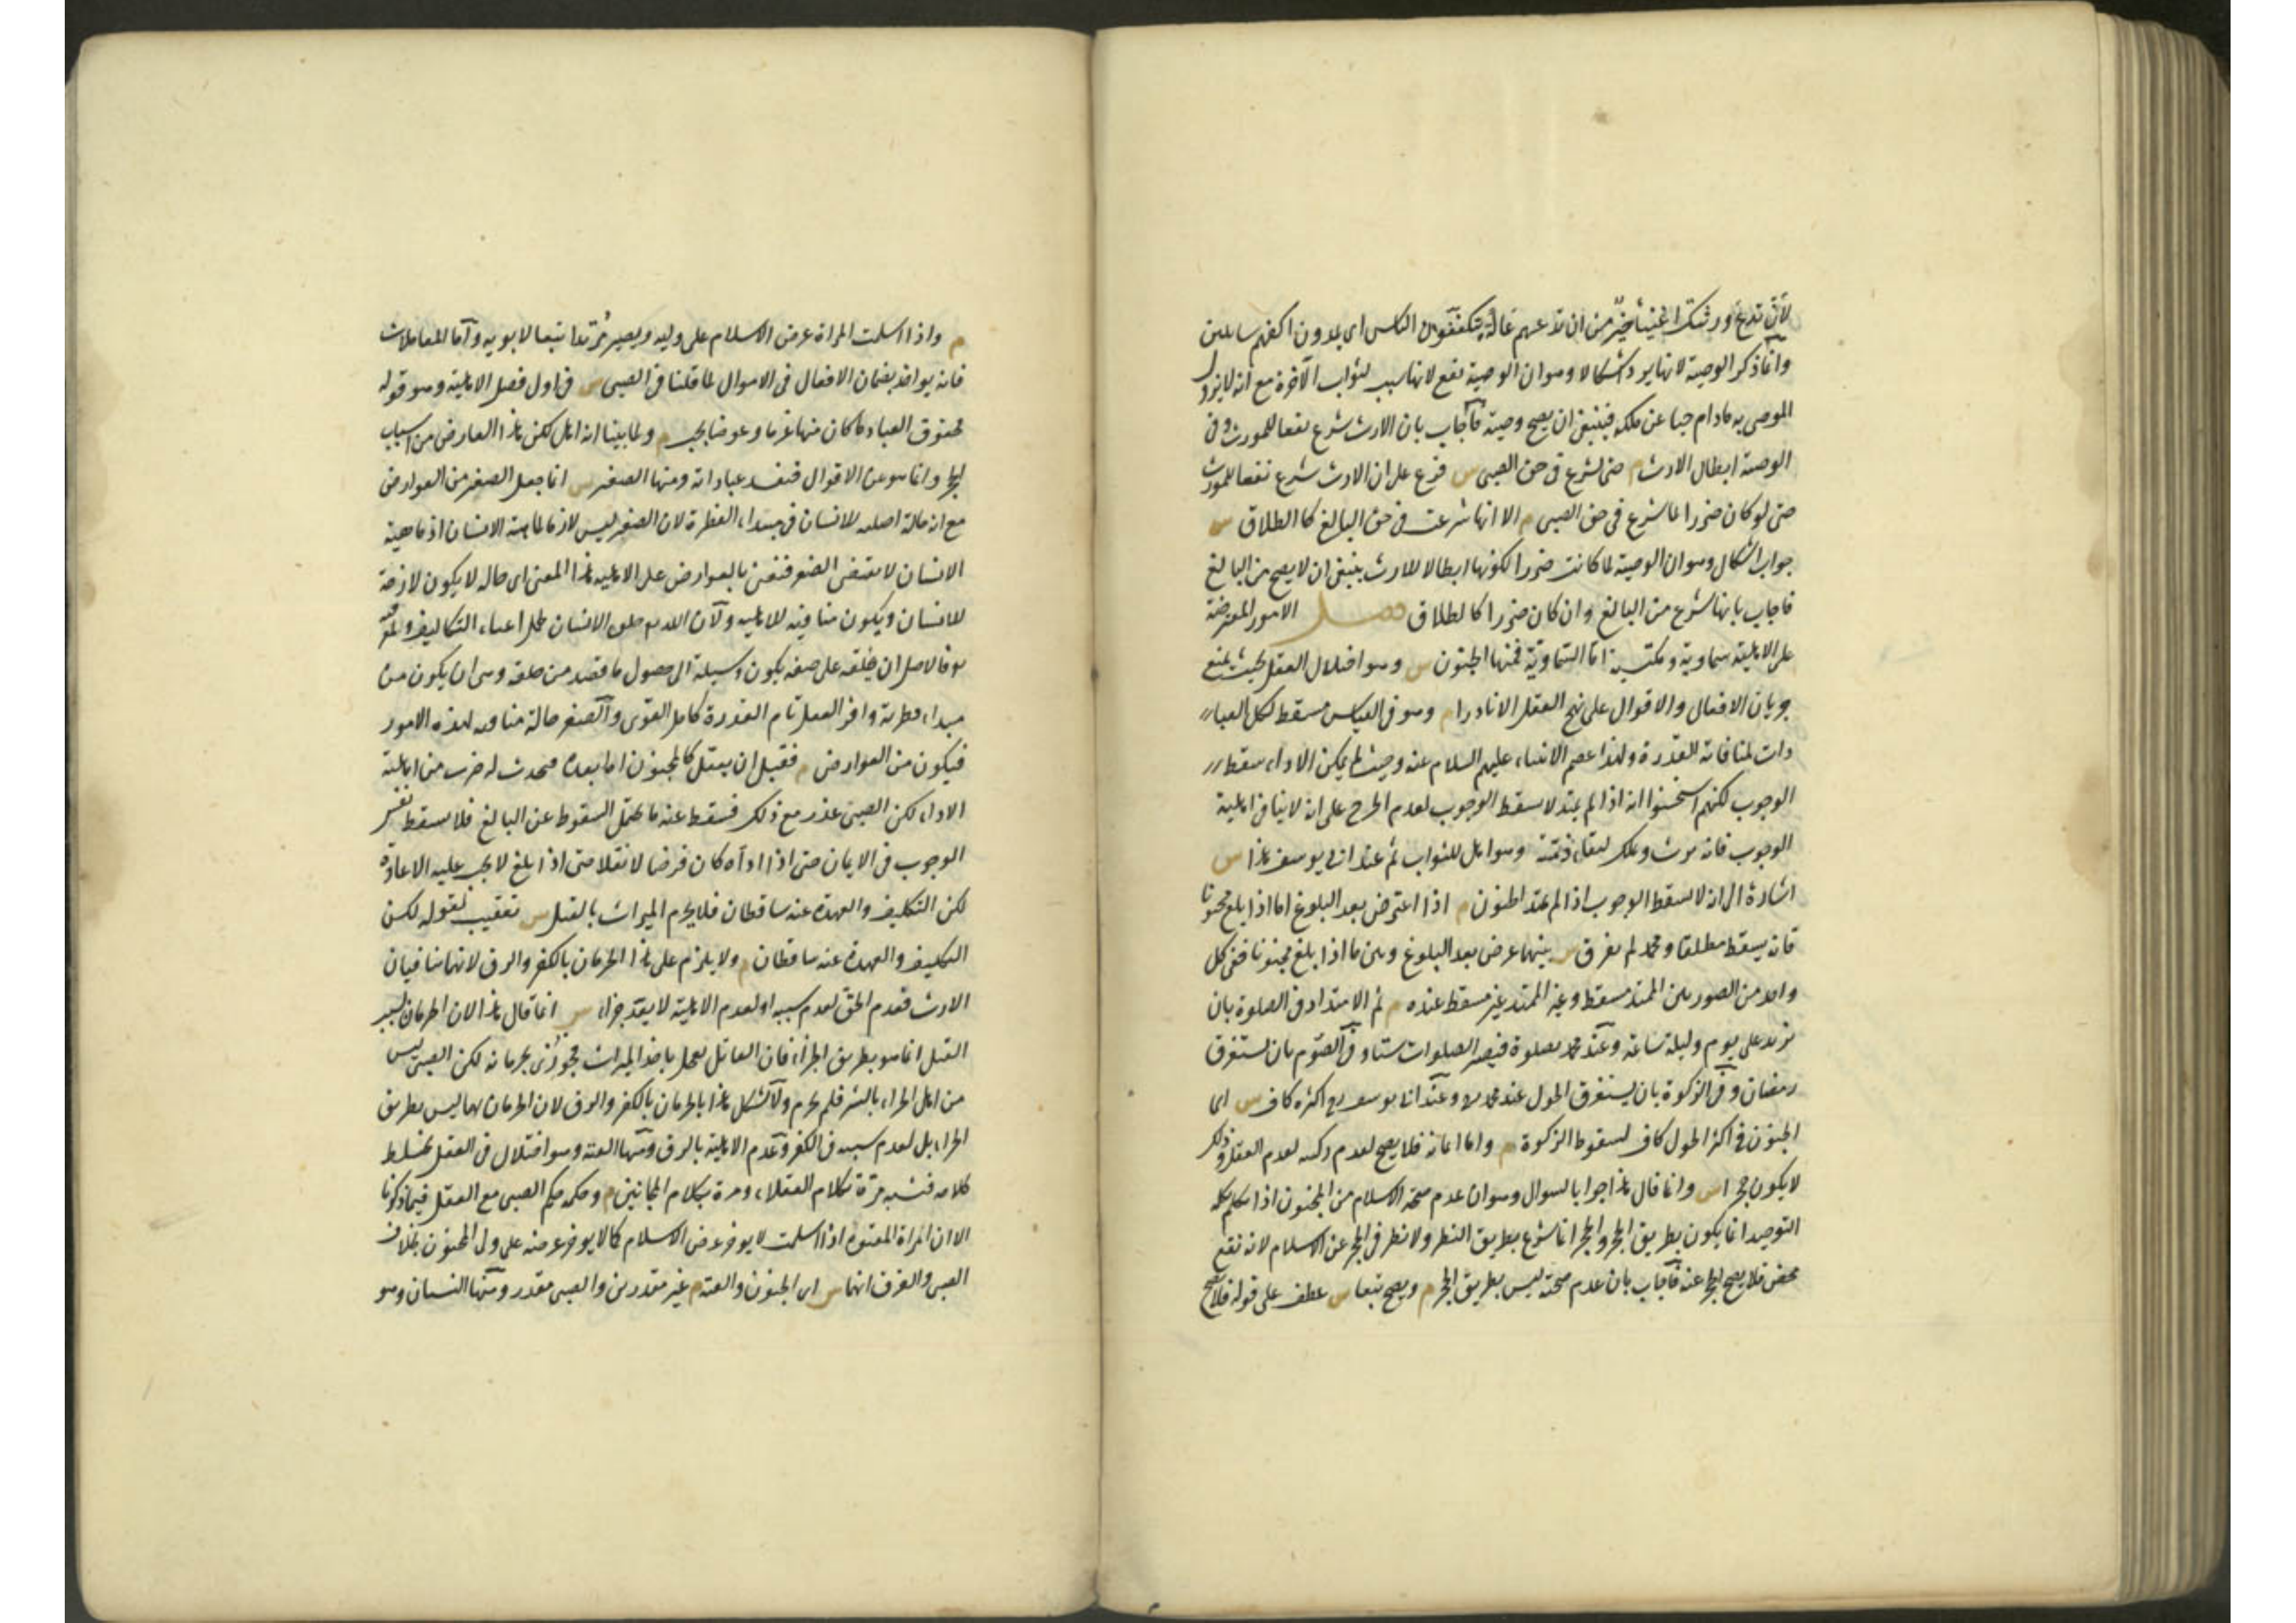 لأن تدع ورثتك اغنياء خير من ان تدعهم عالة يتكففون الناس اى يمدون اكفهم سائلين
وانما ذكر الوصية لانها يرد اشكالا وهو ان الوصية نفع لانها سبب لثواب الآخرة مع انه لا يزول
الموصى به مادام حيا عن ملكه فينبغى ان يصح وصيته فاجاب بان الارث شرع نفعا للمورث وفى
الوصية ابطال الارث م حتى شرع فى حق الصبى س فرع على ان الارث شرع نفعا للمورث
حتى لو كان ضررا لما شرع فى حق الصبى م الا انها شرعت فى حق البالغ كالطلاق س
جواب اشكال وهو ان الوصية لما كانت ضررا لكونها ابطالا للارث ينبغى ان لا يصح من البالغ
فاجاب بانها شرع من البالغ وان كان ضررا كالطلاق فصل الامور المعترضة
على الاهلية سماوية ومكتسبة اما السماوية فمنها الجنون س وهو اختلال العقل بحيث يمنع
جريان الافعال والاقوال على نهج العقل الا نادرا م وهو فى القياس مسقط لكل العبا
دات لمنافاته للقدرة ولهذا عصم الانبياء عليهم السلام عنه وحيث لم يمكن الاداء سقط
الوجوب لكنهم استحسنوا انه اذا لم يمتد لا يسقط الوجوب لعدم الحرج على انه لا ينافى اهلية
الوجوب فانه يرث ويملك لبقاء ذمته وهو اهل للثواب ثم عند ابى يوسف هذا س
اشارة الى انه لا يسقط الوجوب اذا لم يمتد الجنون م اذا اعترض بعد البلوغ اما اذا بلغ مجنونا
فانه يسقط مطلقا ومحمد لم يفرق س بينهما عرض بعد البلوغ وبين ما اذا بلغ مجنونا ففى كل
واحد من الصورتين الممتد مسقط وغير الممتد غير مسقط عنده م ثم الامتداد فى الصلوة بان
يزيد على يوم وليلة ساعة وعند محمد بصلوة فيصير الصلوات ستا وفى الصوم بان يستغرق
رمضان وفى الزكوة بان يستغرق الحول عند محمد وعند ابى يوسف اكثره كاف س اى
الجنون فى اكثر الحول كاف لسقوط الزكوة م واما ايمانه فلا يصح لعدم ركنه لعدم العقل وذلك
لا يكون حجرا س وانما قال هذا جوابا لسؤال وهو ان عدم صحة الاسلام من المجنون اذا تكلم بكلمة
التوحيد انما يكون بطريق الحجر والحجر انما شرع بطريق النظر ولا نظر فى الحجر عن الاسلام لانه نفع
محض فلا يصح الحجر عنه فاجاب بان عدم صحته ليس بطريق الحجر م ويصح تبعا س عطف على قوله فلا يصح
م واذا اسلمت المراة عرض الاسلام على وليه ويصير مرتدا تبعا لابويه واما المعاملات
فانه يواخذ بضمان الافعال فى الاموال لما قلنا فى الصبى س فى اول فصل الاهلية وهو قوله
فحقوق العباد ما كان منها غرما وعوضا يجب م ولما بينا انه اهل لكن هذا العارض من اسباب
الحجر وانما هو عن الاقوال فتفسد عباراته ومنها الصغر س انما جعل الصغر من العوارض
مع انه حالة اصلية للانسان فى مبداء الفطرة لان الصغر ليس لازما لماهية الانسان اذ ماهية
الانسان لا يقتضى الصغر فنعنى بالعوارض على الاهلية هذا المعنى اى حالة لا يكون لازمة
للانسان ويكون منافية للاهلية ولان الله خلق الانسان لحمل اعباء التكاليف
فالاصل ان يخلقه على صفة يكون وسيلة الى حصول ما قصد من خلقه وهى ان يكون من
مبداء فطرته وافر العقل تام القدرة كامل القوى والصغر حالة منافية لهذه الامور
فيكون من العوارض م فقبل ان يعقل كالمجنون اما بعده فيحدث له ضرب من اهلية
الاداء لكن الصبى عذر مع ذلك فسقط عنه ما يحتمل السقوط عن البالغ فلا يسقط نفس
الوجوب فى الايمان حتى اذا اداه كان فرضا لا نفلا حتى اذا بلغ لا يجب عليه الاعادة
لكن التكليف والعهدة عنه ساقطان فلا يحرم الميراث بالقتل س تعقيب لقوله لكن
التكليف والعهدة عنه ساقطان م ولا يلزم على هذا الحرمان بالكفر والرق لانهما ينافيان
الارث فعدم الحق لعدم سببه او لعدم الاهلية لا يعد جزاء س انما قال هذا لان الحرمان بسبب
القتل انما هو بطريق الجزاء فان القاتل تعجل باخذ الميراث فجوزى بحرمانه لكن الصبى ليس
من اهل الجزاء بالشر فلم يحرم ولا يشكل هذا بالحرمان بالكفر والرق لان الحرمان بهما ليس بطريق
الجزاء بل لعدم سببه فى الكفر وعدم الاهلية بالرق ومنها العته وهو اختلال فى العقل يختلط
كلامه فيشبه مرة بكلام العقلاء ومرة بكلام المجانين م وحكمه حكم الصبى مع العقل فيما ذكرنا
الا ان امراة المعتوه اذا اسلمت لا يوخر عرض الاسلام كما لا يوخر عرضه على ولى المجنون بخلاف
الصبى والفرق انهما س اى الجنون والعته م غير مقدرين والصبى مقدر ومنها النسيان وهو